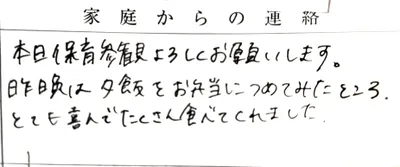 家庭からの連絡
本日保育参観よろしくお願いします。
昨日晩は夕飯をお弁当につめてみたところ、
とても喜んでたくさん食べてくれました。